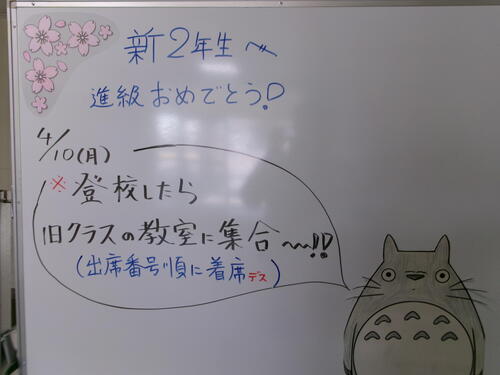 新2年生へ
進級おめでとう!
4/10(月)
※登校したら
旧クラスの教室に集合〜!!
(出席番号順に着席デス)